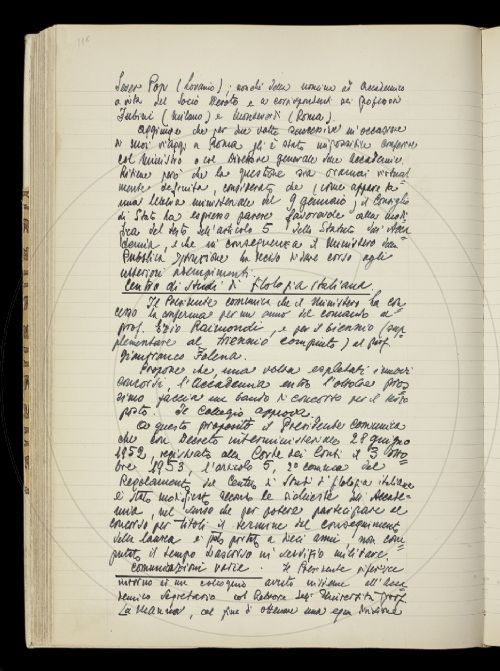 Sever Pop (Lovanio); nonchè della nomina ad Accademico
a vita del Socio Devoto e a corrispondenti dei professori
Fubini (Milano) e Monteverdi (Roma).
Aggiunge che per due volte successive in occasione
di suoi viaggi a Roma gli è stato impossibile conferire
col Ministro o col Direttore generale delle Accademie.
Ritiene però che la questione sia oramai virtual=
mente definita, considerato che (come appare da
una lettera ministeriale del 9 gennaio), il Consiglio
di Stato ha espresso parere favorevole alla modi=
fica del testo dell'articolo 5 dello Statuto dell'Acca=
demia, e che in conseguenza il Ministero della
Pubblica Istruzione ha deciso di dare corso agli
ulteriori adempimenti.
Centro di Studi di filologia italiana.
Il Presidente comunica che il Ministero ha con=
cesso la conferma per un anno del comando al
prof. Ezio Raimondi, e per il biennio (sup=
plementare al triennio compiuto) al prof.
Gianfranco Folena.
Propone che, una volta espletati i nuovi
concorsi, l'Accademia entro l'ottobre pros=
simo faccia un bando di concorso per il terzo
posto. Il Collegio approva.
A questo proposito il Presidente comunica
che con Decreto interministeriale 28 giugno
1952, registrato alla Corte dei Conti il 3 otto=
bre 1953 l'articolo 5, 2° comma del
Regolamento del Centro di Studi di filologia italiana
è stato modificato secondo le richieste dell'Accade=
mia, nel senso che per potere partecipare al
concorso per titoli il termine del conseguimento
della laurea è stato portato a dieci anni, non com=
putato il tempo trascorso in servizio militare.
Comunicazioni varie. Il Presidente riferisce
intorno ad un colloquio avuto insieme all'Acca=
demico Segretario col Rettore dell'Università prof.
Lamanna, al fine di ottenere una equa divisione